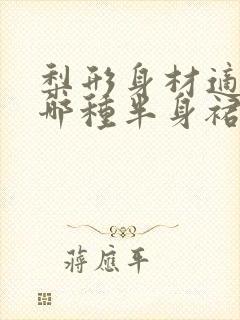 梨形身材適
哪種半身裙
蔣應平